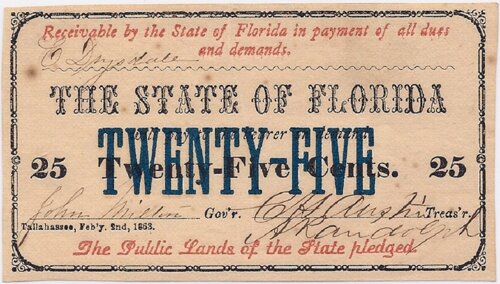 Receivable by the State of Florida in payment of all dues
and demands.
C Drysdale
THE STATE OF FLORIDA
bearer on demand
TWENTY-FIVE
25 Twenty-Five Cents. 25
John Milton Gov'r. C H Austin Treas'r.
Tallahassee, Feb'y. 2nd, 1863. A Randolph
The Public Lands of the State pledged.